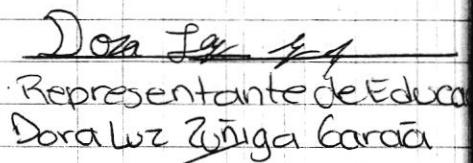 Dora
Representante de Educa
Dora Luz Zuñiga Garcia